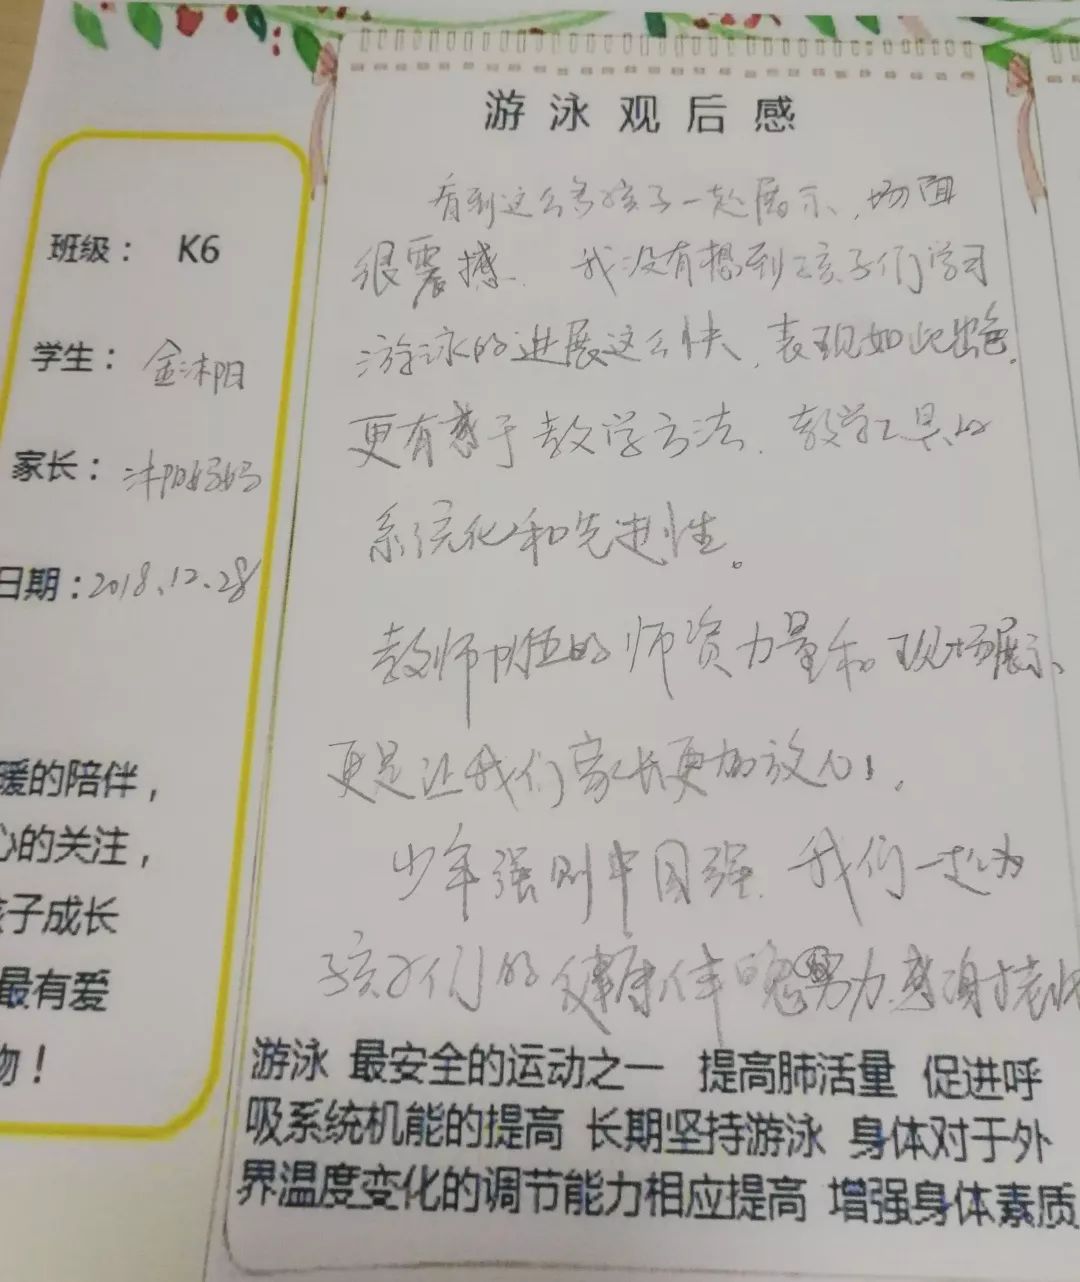 游泳观后感
班级： K6
学生： 金沐阳
家长： 沐阳妈妈
日期：2018.12.28
暖的陪伴，
心的关注，
孩子成长
最有爱
物！
看到这么多孩子一起展示，场面
很震撼. 我没有想到孩子们学习
游泳的进展这么快，表现如此出色，
更有感于教学方法，教学工具的
系统化和先进性。
教师队伍的师资力量和现场展示
更是让我们家长更加放心！，
少年强则中国强，我们一起为
孩子们的健康体魄努力，感谢老师
游泳 最安全的运动之一 提高肺活量 促进呼
吸系统机能的提高 长期坚持游泳 身体对于外
界温度变化的调节能力相应提高 增强身体素质